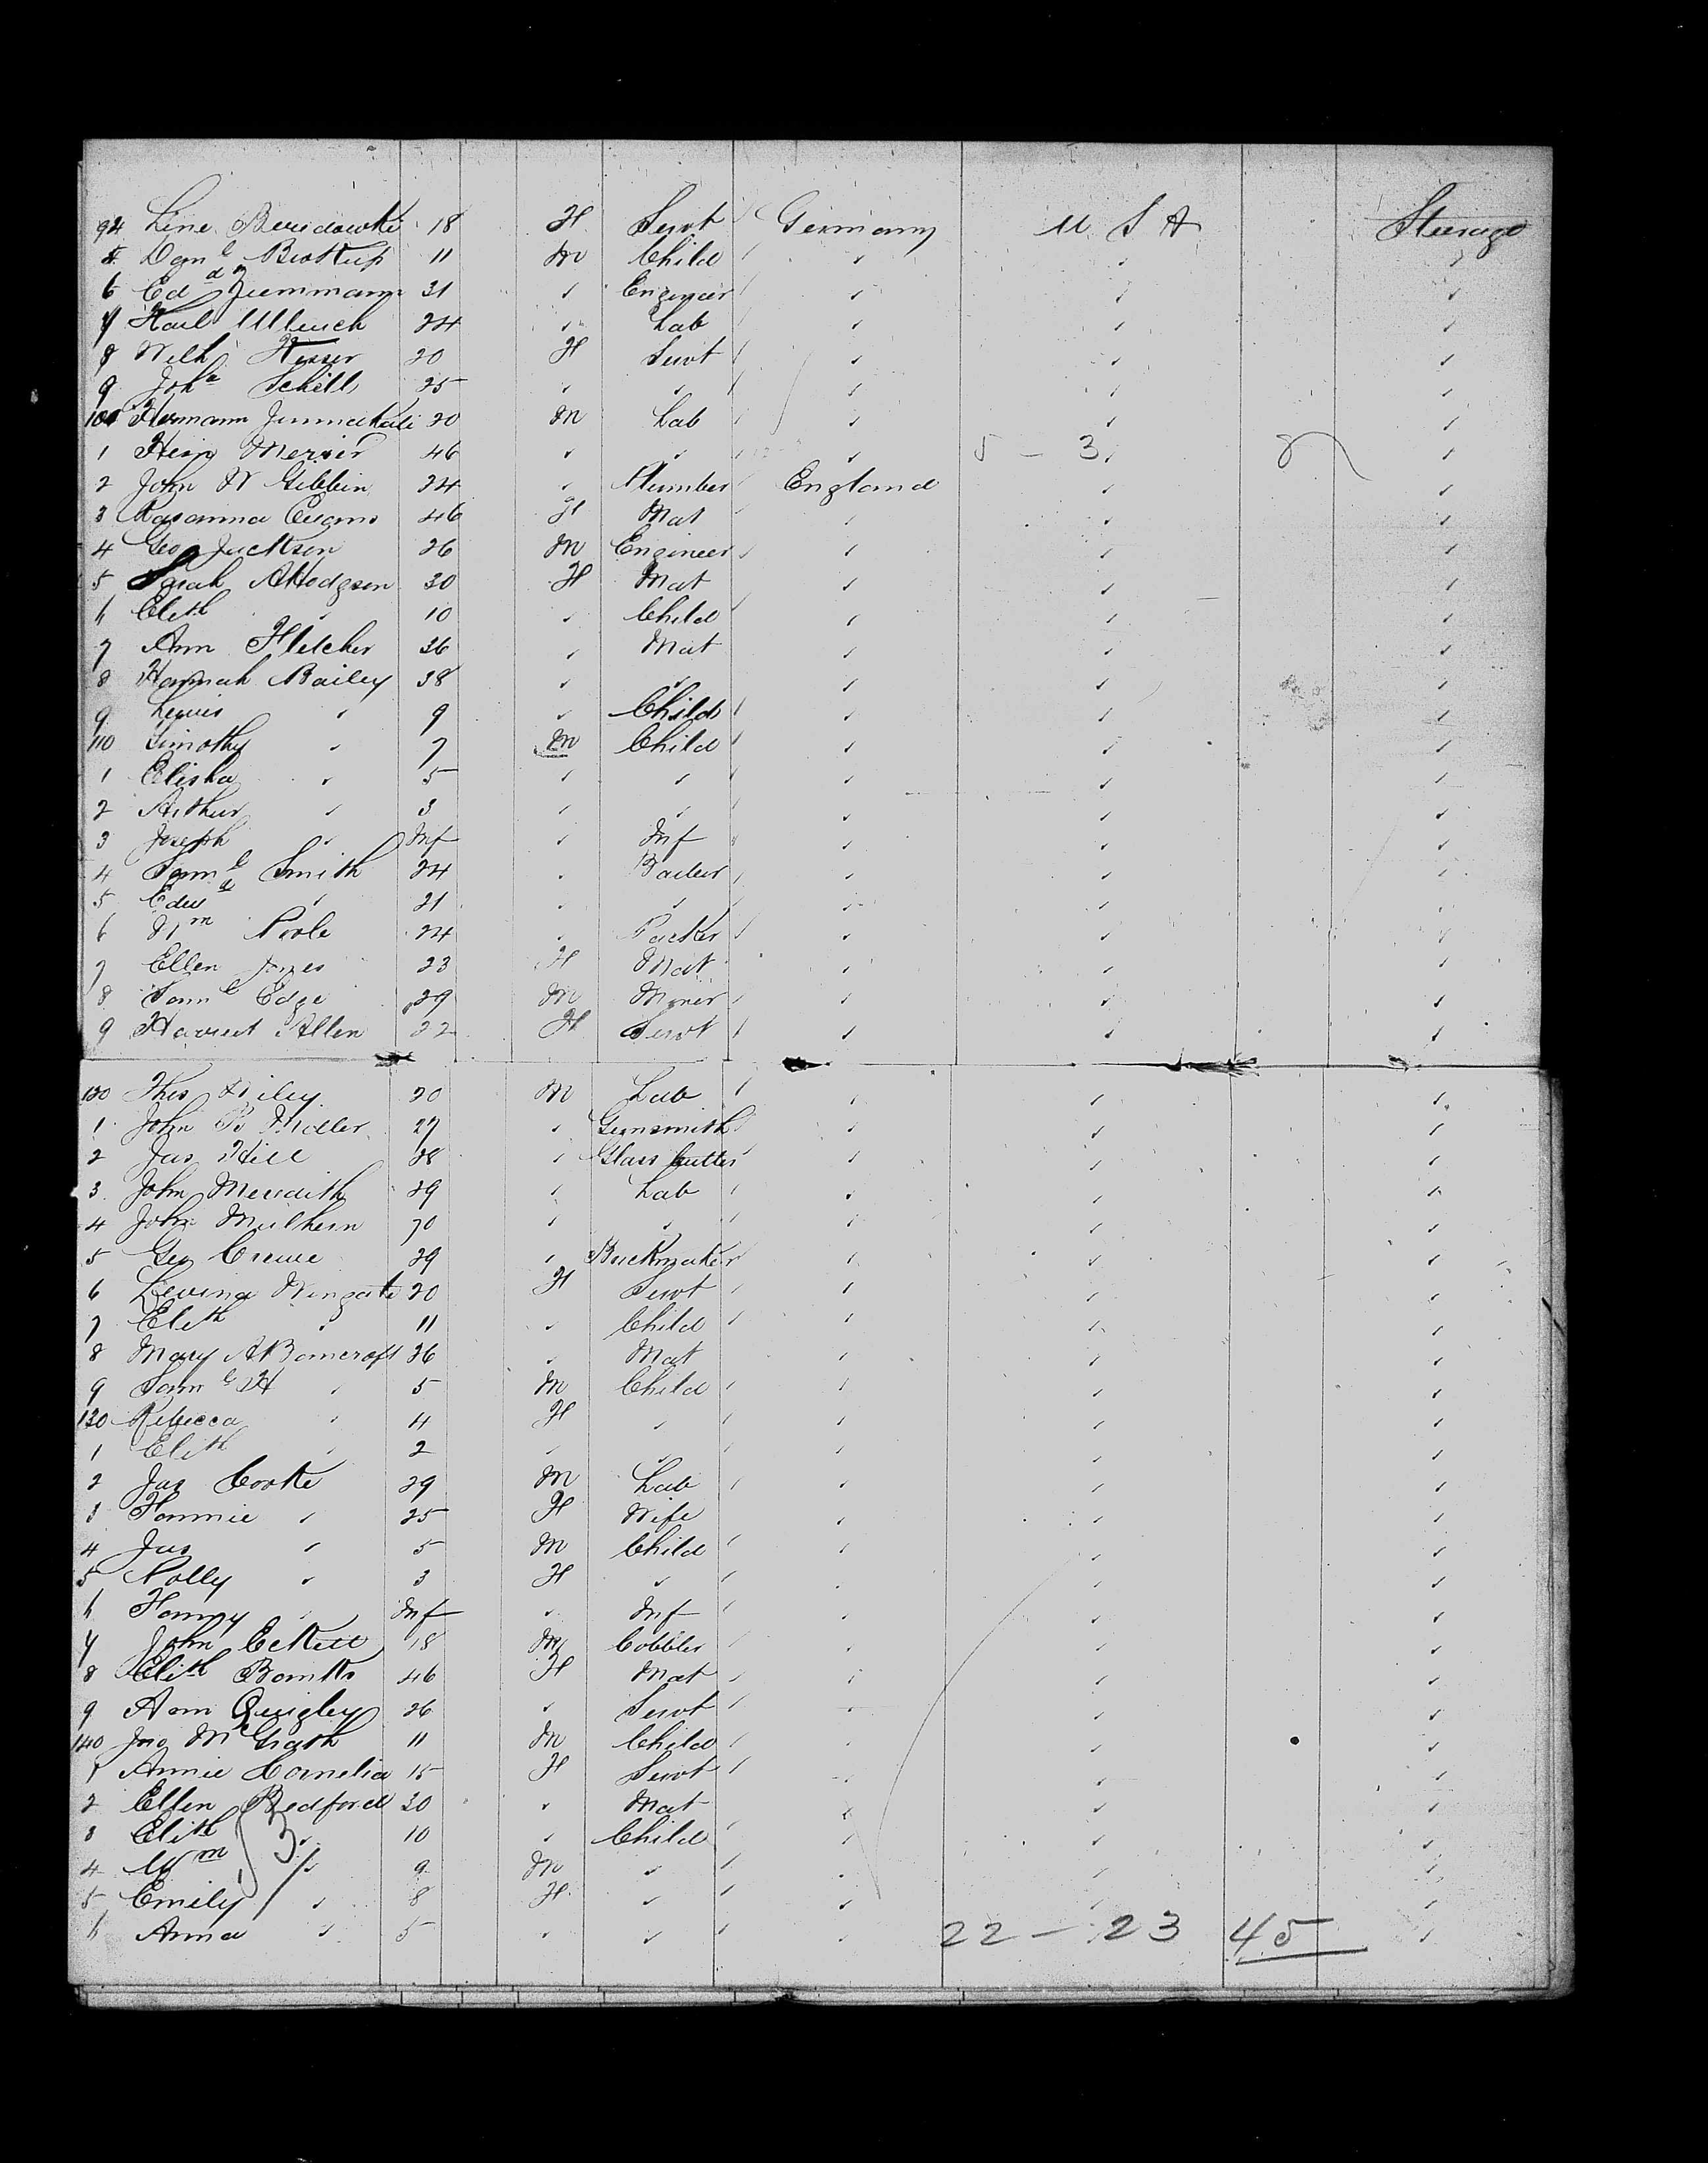 94 Line 18 H Servt Germany U S A Steerage
5 Danl 11 m Child ✓ ✓ ✓
6 Edd Zimmmann 31 ✓ Engineer ✓ ✓ ✓
7 Karl Ullrich 24 ✓ Lab ✓ ✓ ✓
8 Wilh 20 H Servt ✓ ✓ ✓
9 Joha Schill 25 ✓ ✓ ✓ ✓ ✓
100 Hermann 20 m Lab ✓ ✓ ✓
1 46 ✓ ✓ ✓ 5 - 3 8 ✓
2 John W Gibbin 24 ✓ Plumber England ✓ ✓
3 Rosanna 46 H Mat ✓ ✓ ✓
4 Geo Jackson 26 m Engineer ✓ ✓ ✓
5 Sarah A Hodgson 30 H Mat ✓ ✓ ✓
6 Elith ✓ 10 ✓ Child ✓ ✓ ✓
7 Ann Fletcher 36 ✓ Mat ✓ ✓ ✓
8 Hannah Bailey 38 ✓ ✓ ✓ ✓ ✓
9 Lewis ✓ 9 ✓ Child ✓ ✓ ✓
110 Timothy ✓ 7 m Child ✓ ✓ ✓
1 Elisha ✓ 5 ✓ ✓ ✓ ✓ ✓
2 Arthur ✓ 3 ✓ ✓ ✓ ✓ ✓
3 Joseph ✓ Inf ✓ Inf ✓ ✓ ✓
4 Saml Smith 24 ✓ ✓ ✓ ✓
5 Edwd ✓ 21 ✓ ✓ ✓ ✓ ✓
6 Wm Poole 24 ✓ Packer ✓ ✓ ✓
7 Ellen Jones 23 H Mat ✓ ✓ ✓
8 Saml Edge 29 m Miner ✓ ✓ ✓
9 Harriet Allen 22 H Servt ✓ ✓ ✓
120 Thos Riley 20 m Lab ✓ ✓ ✓
1 John B Miller 27 ✓ Gunsmith ✓ ✓ ✓
2 Jas Hill 28 ✓ Glass Cutter ✓ ✓ ✓
3 John Meredith 29 ✓ Lab ✓ ✓ ✓
4 John Mulhern 70 ✓ ✓ ✓ ✓ ✓
5 Geo Crewe 29 ✓ Brickmaker ✓ ✓ ✓
6 Levina Wingate 20 H Servt ✓ ✓ ✓
7 Elith ✓ 11 ✓ Child ✓ ✓ ✓
8 Mary A Bancroft 36 ✓ Mat ✓ ✓ ✓
9 Saml H ✓ 5 m Child ✓ ✓ ✓
130 Rebecca ✓ 4 H ✓ ✓ ✓ ✓
1 Elith ✓ 2 ✓ ✓ ✓ ✓ ✓
2 Jas Cooke 29 m Lab ✓ ✓ ✓
3 Fannie ✓ 25 H Wife ✓ ✓ ✓
4 Jas ✓ 5 m Child ✓ ✓ ✓
5 Polly ✓ 3 H ✓ ✓ ✓ ✓
6 Fanny ✓ Inf ✓ Inf ✓ ✓ ✓
7 John 18 m Cobbler ✓ ✓ ✓
8 Elith Banks 46 H Mat ✓ ✓ ✓
9 Ann Quigley 26 ✓ Servt ✓ ✓ ✓
140 Jno McGrath 11 m Child ✓ ✓ ✓
1 Annie Cornelia 15 H Servt ✓ ✓ ✓
2 Ellen Bedford 30 ✓ Mat ✓ ✓ ✓
3 Elith ✓ 10 ✓ Child ✓ ✓ ✓
4 Wm ✓ 9 m ✓ ✓ ✓ ✓
5 Emily ✓ 8 H ✓ ✓ ✓ ✓
6 Anna ✓ 5 ✓ ✓ ✓ 22 - 23 45 ✓